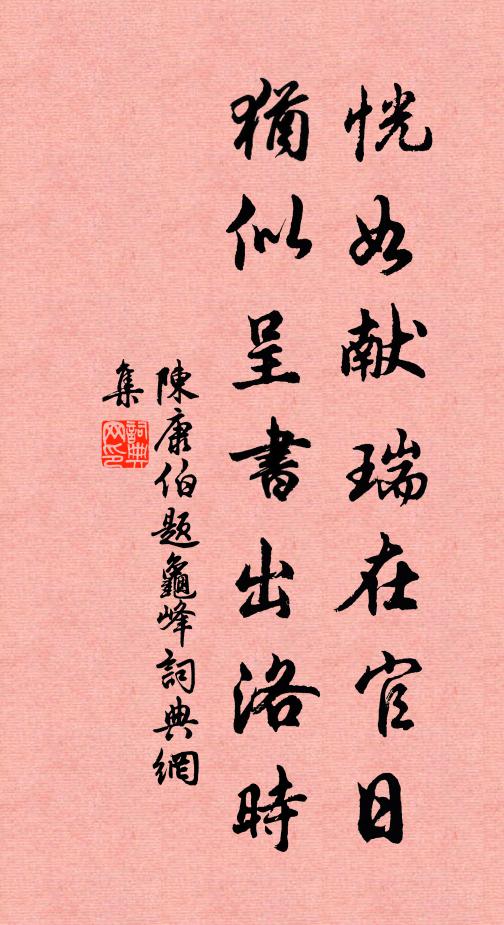 恍如献瑞在官日
猶似呈書出洛時
陳康伯题龜峰詞典網
集
詞典
网印